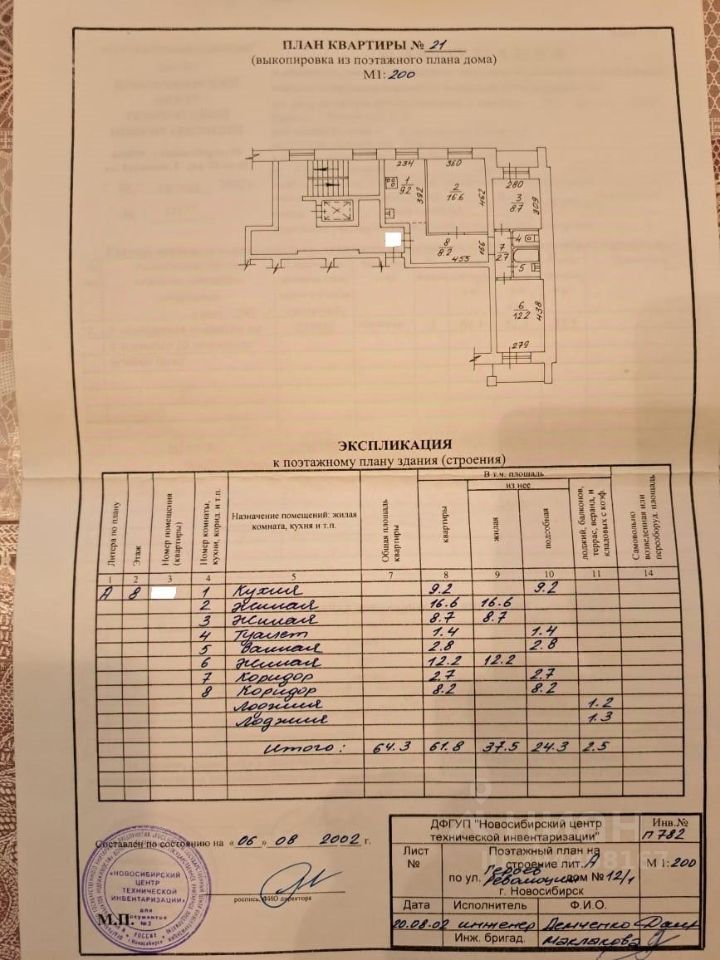 ПЛАН КВАРТИРЫ № 21
(выкопировка из поэтажного плана дома)
М1: 200
234
360
280
1
9.2
392
2
16.6
462
3
8.7
309
4
8
8.2
166
455
7
2.7
5
6
12.2
438
279
ЭКСПЛИКАЦИЯ
к поэтажному плану здания (строения)
Литера по плану
Этаж
Номер помещения (квартиры)
Номер комнаты, кухни, корид. и т.п.
Назначение помещений: жилая комната, кухня и т.п.
Общая площадь квартиры
В т.ч. площадь
из нее
квартиры
жилая
подсобная
лоджий, балконов, террас, веранд, и кладовых с коэф.
Самовольно возведенная или переоборуд. площадь
1 2 3 4 5 7 8 9 10 11 14
А 8 1 Кухня 9.2 9.2
2 Жилая 16.6 16.6
3 Жилая 8.7 8.7
4 Туалет 1.4 1.4
5 Ванная 2.8 2.8
6 Жилая 12.2 12.2
7 Коридор 2.7 2.7
8 Коридор 8.2 8.2
Лоджия 1.2
Лоджия 1.3
Итого: 64.3 61.8 37.5 24.3 2.5
Составлен по состоянию на « 06 » 08 2002 г.
роспись, ФИО директора
М.П.
«НОВОСИБИРСКИЙ
ЦЕНТР
ТЕХНИЧЕСКОЙ
ИНВЕНТАРИЗАЦИИ»
для
документов
№ 2
ДФГУП "Новосибирский центр
технической инвентаризации"
Инв.№
П 782
Лист
№
Поэтажный план на
строение лит. А
по ул. Героев
Революции дом № 12/1
г. Новосибирск
М 1:200
Дата Исполнитель Ф.И.О.
20.08.02 инженер Демченко
Инж. бригад. Маклакова